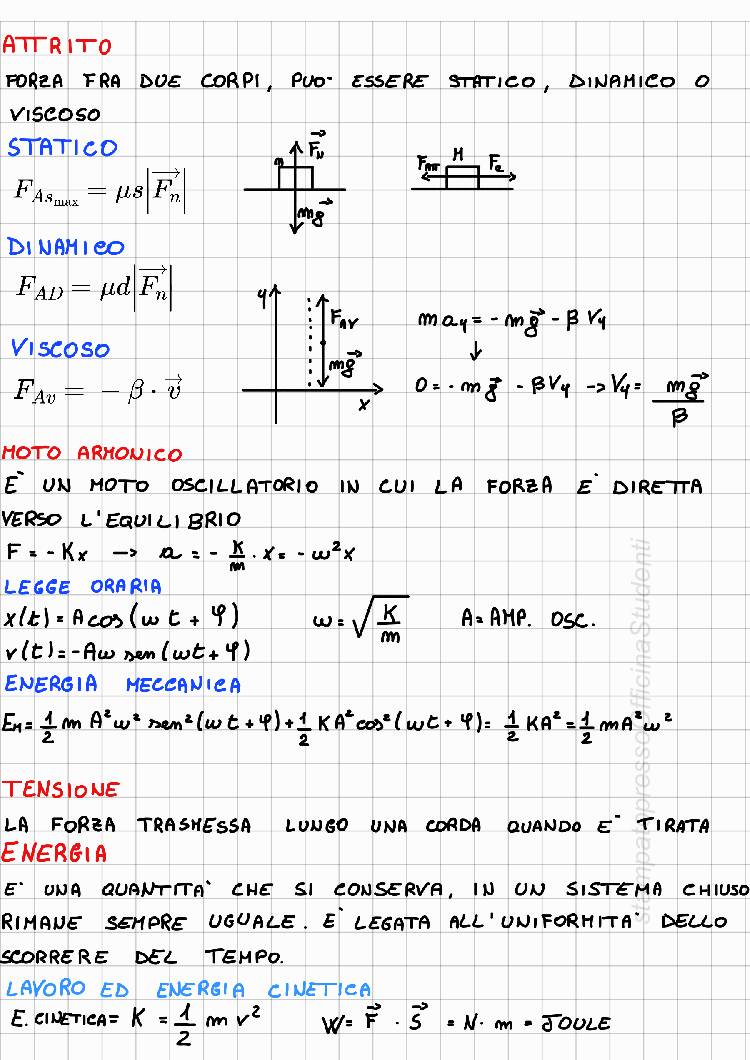 ATTRITO
FORZA FRA DUE CORPI, PUO' ESSERE STATICO, DINAMICO O
VISCOSO
STATICO
F_{As_{max}} = μs|\vec{F_n}|
m \vec{F}_N
m\vec{g}
F_{ATT} M F_e
DINAMICO
F_{AD} = μd|\vec{F_n}|
y F_{AV}
m\vec{g}
x
m a_y = - m\vec{g} - β V_y
↓
0 = - m\vec{g} - β V_y → V_y = \frac{m\vec{g}}{β}
VISCOSO
F_{Av} = - β · \vec{v}
MOTO ARMONICO
E' UN MOTO OSCILLATORIO IN CUI LA FORZA E' DIRETTA
VERSO L'EQUILIBRIO
F = - Kx → a = - \frac{K}{m} · x = - ω²x
LEGGE ORARIA
x(t) = A cos (ω t + φ) ω = \sqrt{\frac{K}{m}} A = AMP. OSC.
v(t) = -Aω sen (ωt + φ)
ENERGIA MECCANICA
E_M = \frac{1}{2} m A²ω² sen² (ω t + φ) + \frac{1}{2} KA² cos² (ωt + φ) = \frac{1}{2} KA² = \frac{1}{2} mA²ω²
TENSIONE
LA FORZA TRASMESSA LUNGO UNA CORDA QUANDO E' TIRATA
ENERGIA
E' UNA QUANTITA' CHE SI CONSERVA, IN UN SISTEMA CHIUSO
RIMANE SEMPRE UGUALE. E' LEGATA ALL'UNIFORMITA' DELLO
SCORRERE DEL TEMPO.
LAVORO ED ENERGIA CINETICA
E. CINETICA = K = \frac{1}{2} m v² W = \vec{F} · \vec{S} = N · m = JOULE
OfficinaStudenti